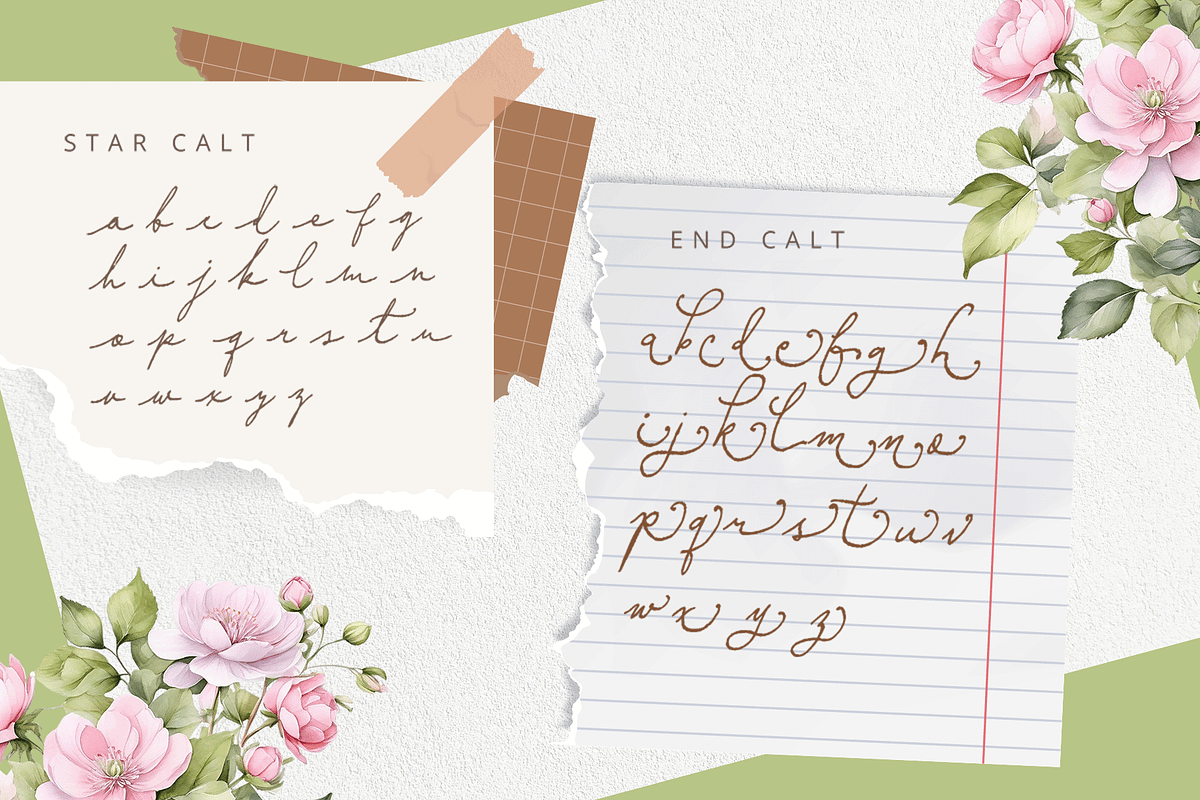 STAR CALT
a b c d e f g
h i j k l m n
o p q r s t u
v w x y z
END CALT
a b c d e f g h
i j k l m n o
p q r s t u v
w x y z